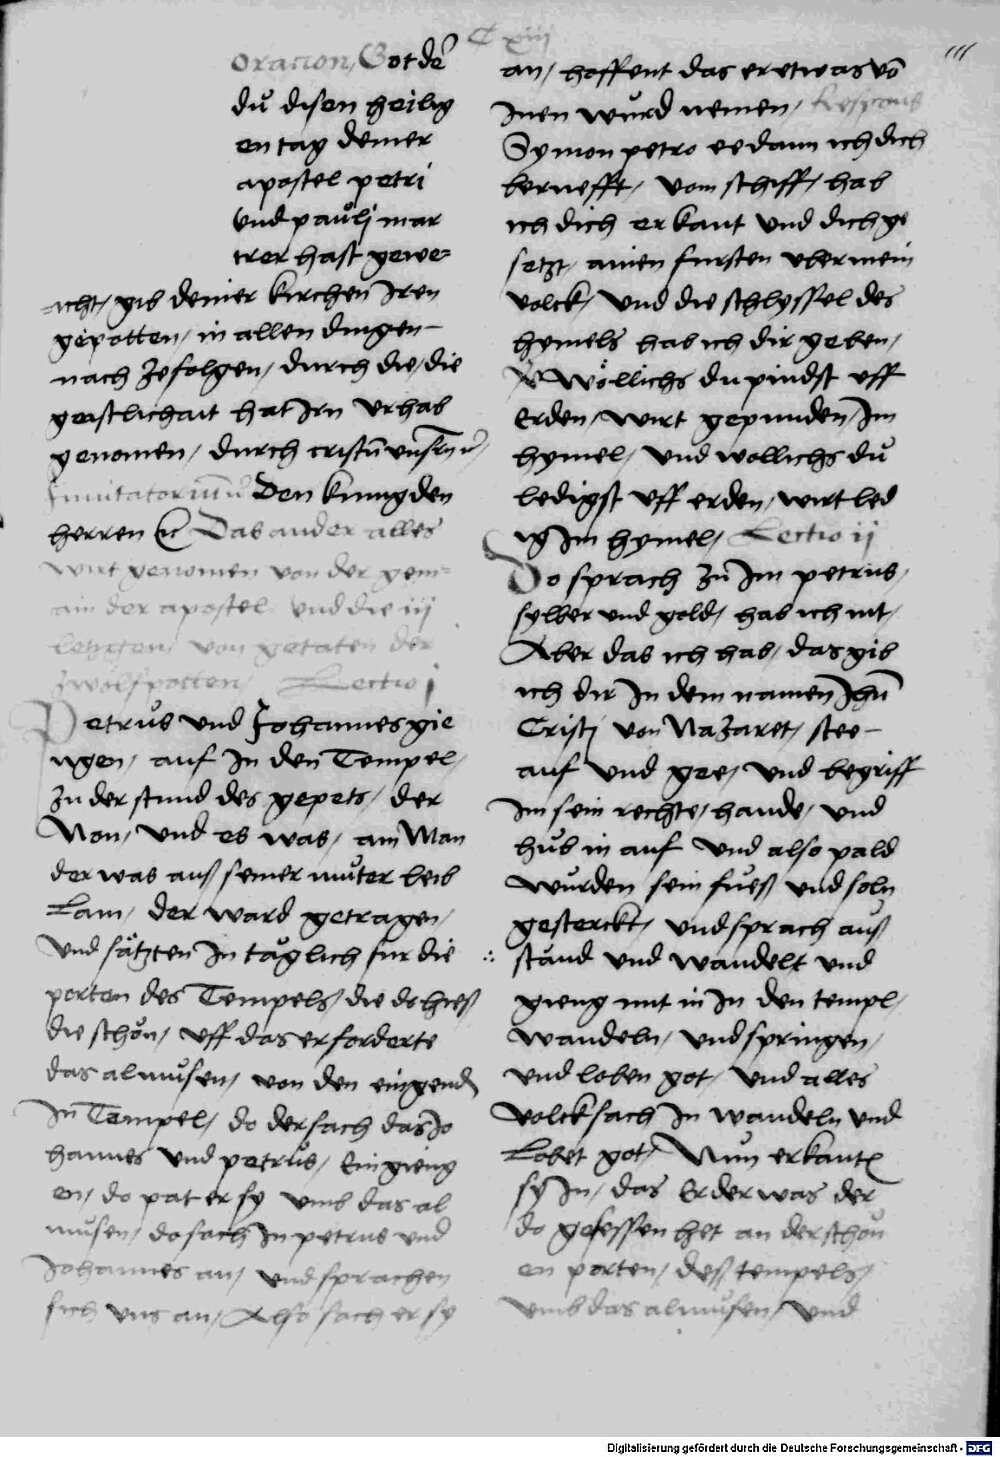 C xiij
111
Oracion, Got dē
du disen heilig
en tag deiner
apostel petri
vnd pauli mar
trer hast gewe=
=icht, gib deiner kirchen Iren
gepotten, in allen dingen
nach zefolgen, durch die, die
geistlichait hat Irn vrhab
genomen, durch cristū vnsern
Inuitatoriū Den kunig den
herren Das ander alles
wirt genomen von der gem=
ain der apostel vnd die iij
letzgen, von getaten der
zwolfpotten, Lectio j
Petrus vnd Johannes gie
ngen, auf In den Tempel,
zu der stund des gepets, der
Non, vnd es was, ain Man
der was auß seiner muter leib
Lam, der ward getragen,
vnd sätzten In täglich fur die
porten des Tempels, die do hieß
die schön, vff das er forderte
das almusen, von den eingend
In Tempel, do der sach das Jo
hannes vnd petrus, Eingieng
en, do pat er sy vmb das al
musen, do sach In petrus vnd
Johannes an, vnd sprachen
sich vns an, Also sach er sy
an, hoffent das er etwas vō
Inen wurd nemen, Respons
Symon petro ee dann ich dich
beruefft, vom schiff, hab
ich dich erkant vnd dich ge
setzt, ainen fursten vber mein
volck, vnd die schlyssel des
hymels hab ich dir geben,
Wöllichs du pindst vff
Erden, wirt gepunden, Im
hymel, vnd wollichs du
ledigst vff erden, wirt led
ig Im hymel, Lectio ij
Do sprach zu Im petrus,
sylber vnd gold, hab ich nit,
Aber das ich hab, das gib
ich dir In dem namen Jhū
Cristj von Nazaret, stee
auf vnd gee, vnd begriff
Im sein rechte, hande, vnd
hub in auf vnd also pald
wurden sein fueß vnd soln
gesterckt, vnd sprach auß
stund vnd wandelt vnd
gieng mit in In den templ,
wandeln, vnd springen,
vnd loben got, vnd alles
volck sach In wandeln vnd
Lobet got, Nun erkanten
sy In, das Er der was der
do gesessen het an der schön
en porten, deß tempels,
vmb das almusen, vnd
Digitalisierung gefördert durch die Deutsche Forschungsgemeinschaft - DFG